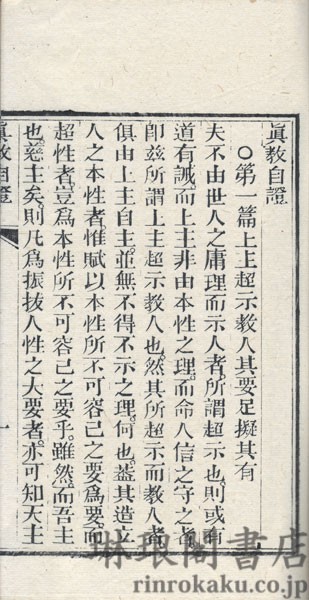 眞教自證
○第一篇上主超示教人其要足擬其有
夫不由世人之庸理而示人者所謂超示也則或有
道有誡而上主非由本性之理而命人信之守之者
卽茲所謂上主超示教人也然其所超示而教人者
俱由上主自主並無不得不示之理何也葢其造立
人之本性者惟賦以本性所不可容已之要爲要而
超性者豈爲本性所不可容已之要乎雖然而吾主
也慈主矣則凡爲振拔人性之大要者亦可知天主
眞教自證
一
琳琅閣書店
rinrokaku.co.jp